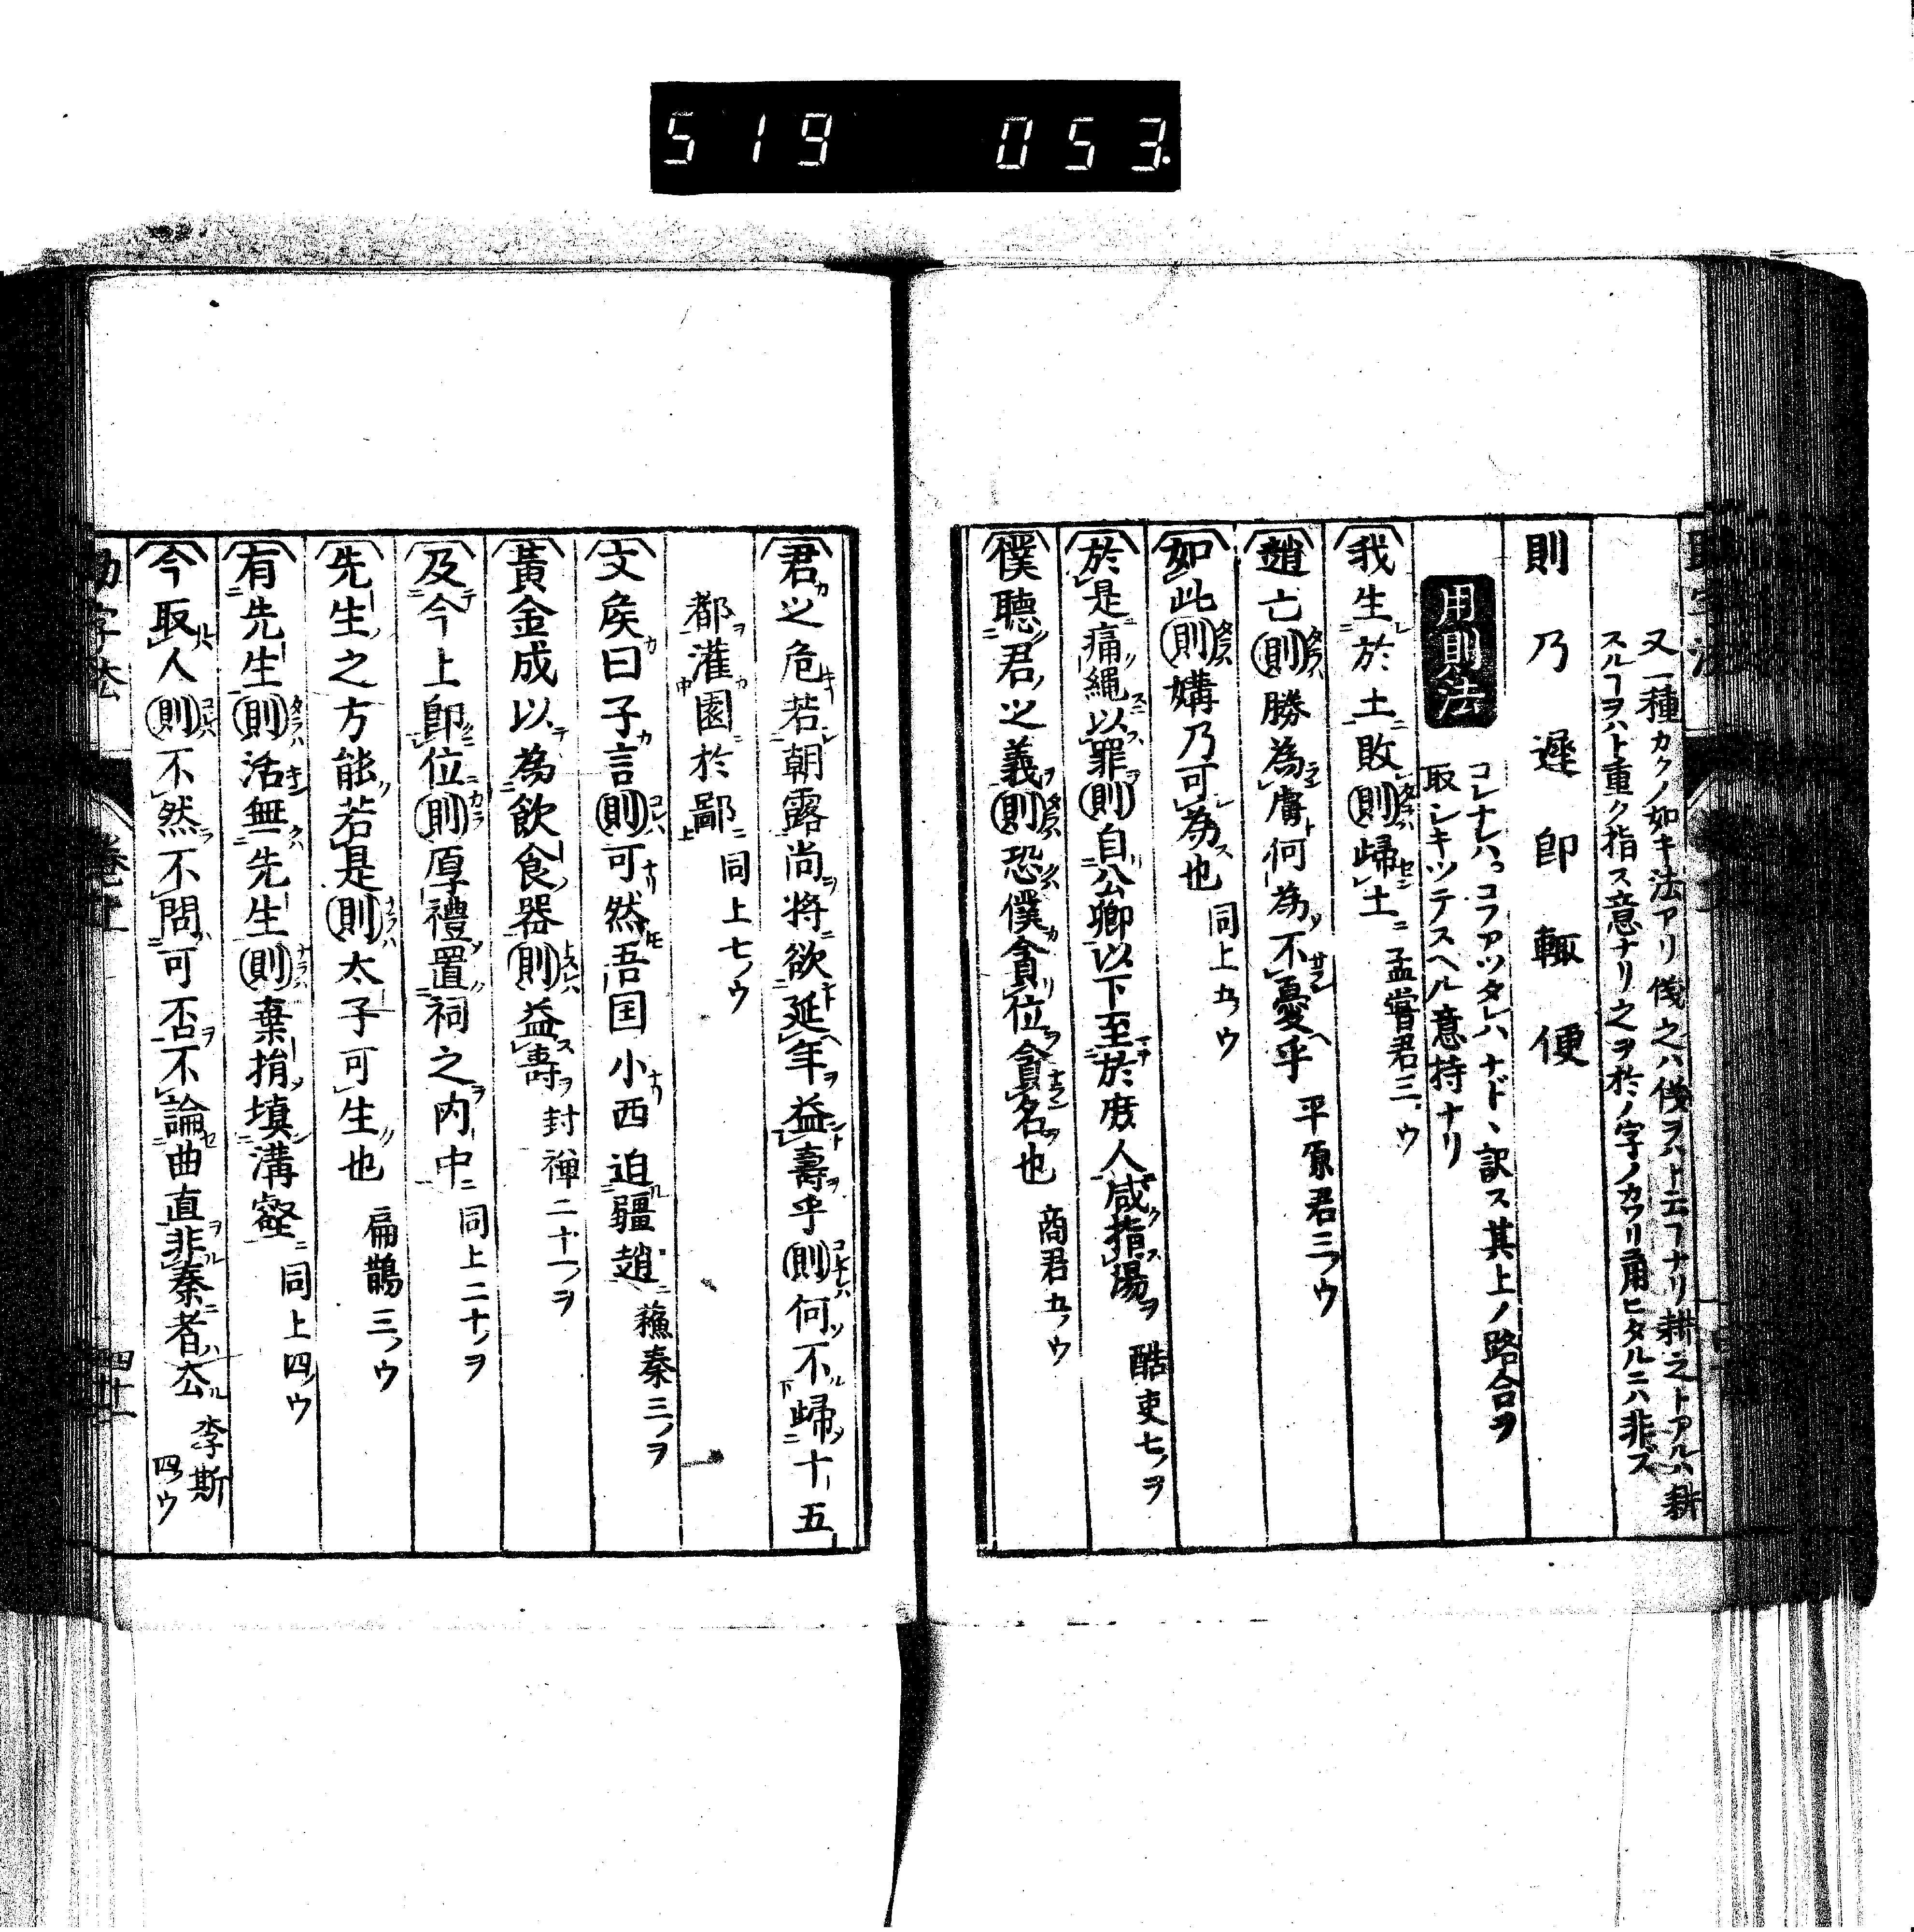 519 053.
又一種カクノ如キ法アリ俊之ハ俊ヲハト云フナリ耕之トアルハ耕
スルヿヲハト重ク指ス意ナリ之ヲ於ノ字ノカワリニ用ヒタルニハ非ズ
則 乃 遅 即 輙 便
用則法
コレナレハコフアツタレハナドヽ訳ス其上ノ路合ヲ
取シキツテスヘル意持ナリ
我生於土敗則歸土 孟嘗君三ノウ
趙亡則勝為虜何為不憂乎 平原君三ノウ
如此則媾乃可為也 同上五ノウ
於是痛繩以罪則自公卿以下至於庶人咸指湯 酷吏七ノヲ
僕聽君之義則恐僕貪位貪名也 商君五ノウ
君之危若朝露尚將欲延年益壽乎則何不歸十五
都灌園於鄙 同上七ノウ
文矦曰子言則可然吾国小西迫疆趙 蘓秦三ノヲ
黃金成以為飲食器則益壽 封禅二十一ノヲ
及今上卽位則厚禮置祠之内中 同上二十ノヲ
先生之方能若是則太子可生也 扁鵲三ノウ
有先生則活無先生則棄捐填溝壑 同上四ノウ
今取人則不然不問可否不論曲直非秦者厺 李斯
四ノウ